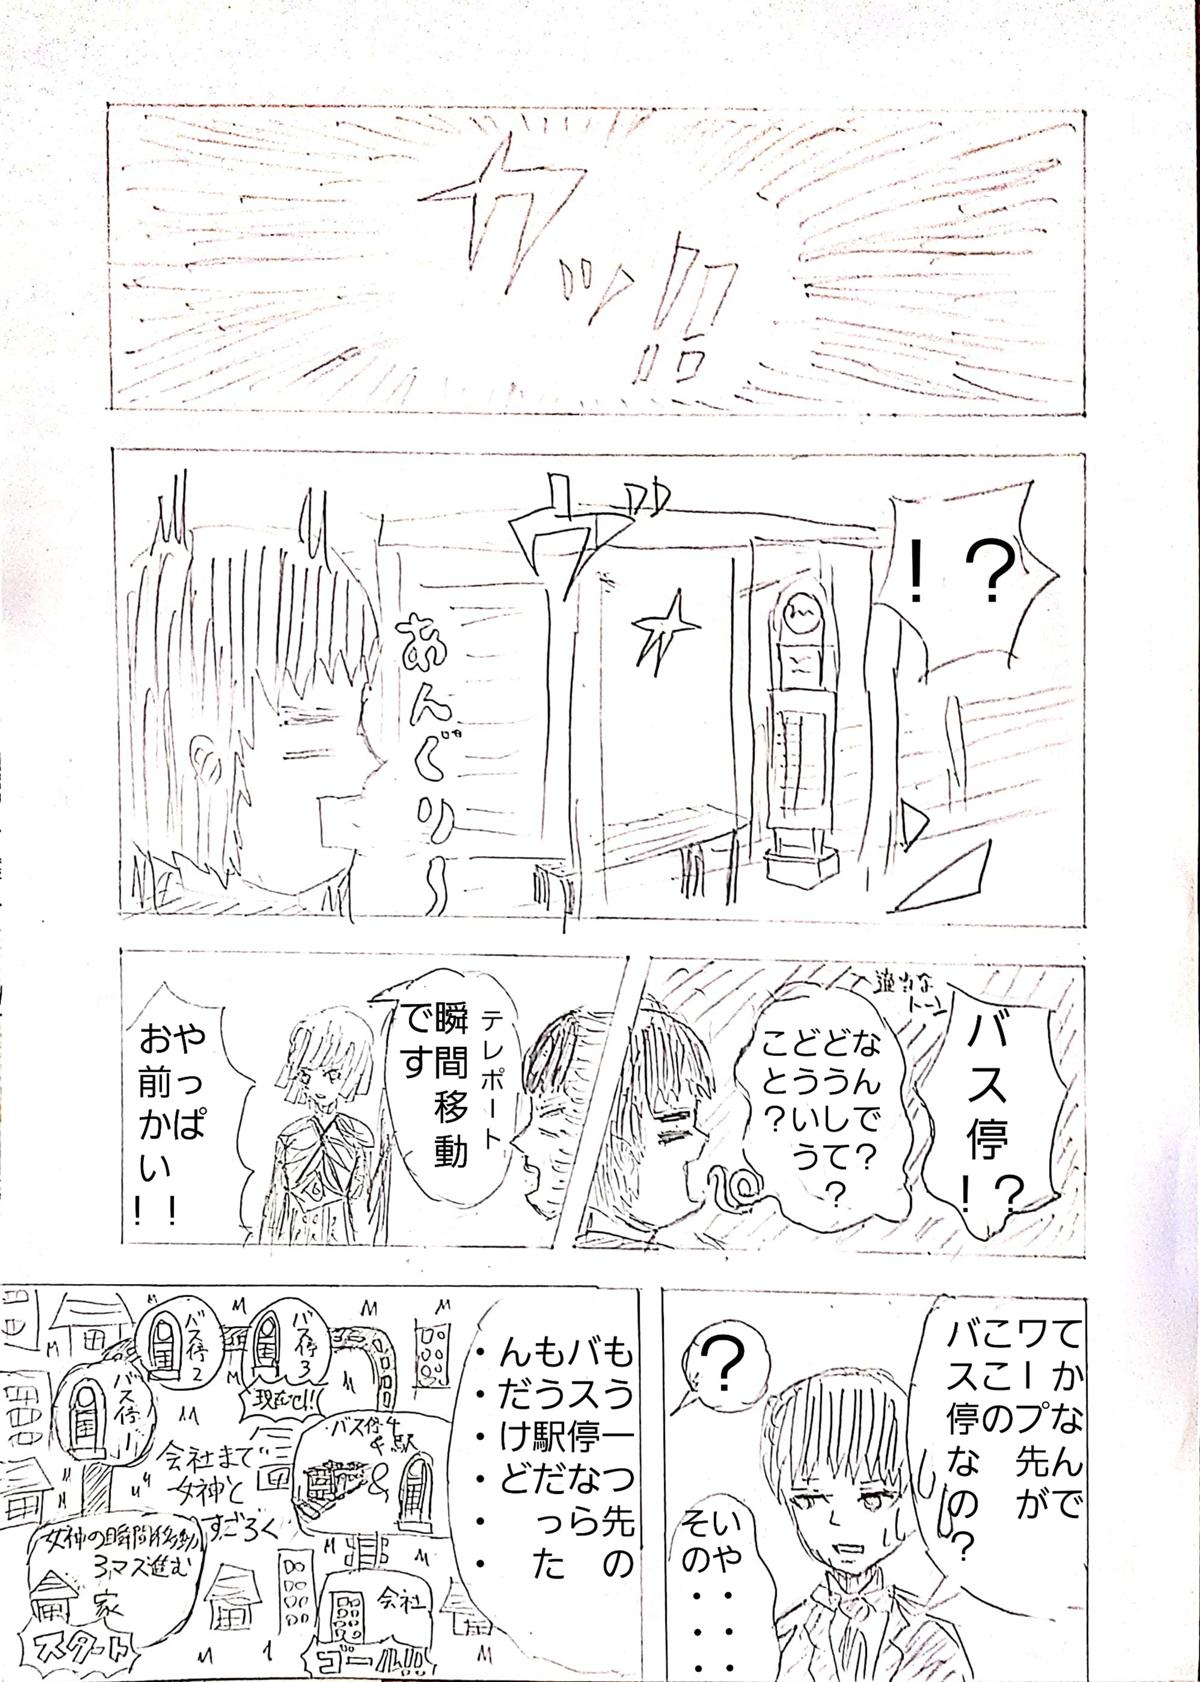 カッ!!
!?
ヴヴ
あんぐり〜
バス停!?
適当な
トーン
なんで?
どうして?
どういう
こと?
テレポート
瞬間移動
です
やっぱ
お前かい!!
てかなんで
ワープ先が
ここの
バス停なの?
?
いや・・・
その・・・
もう一つ先の
バス停なら
もう駅だった
んだけど・・
・・・・・・
バス停1
バス停2
バス停3
現在地!!
バス停4
&駅
&
会社まで
女神と
すごろく
女神の瞬間移動
3マス進む
家
スタート
会社
ゴール!!